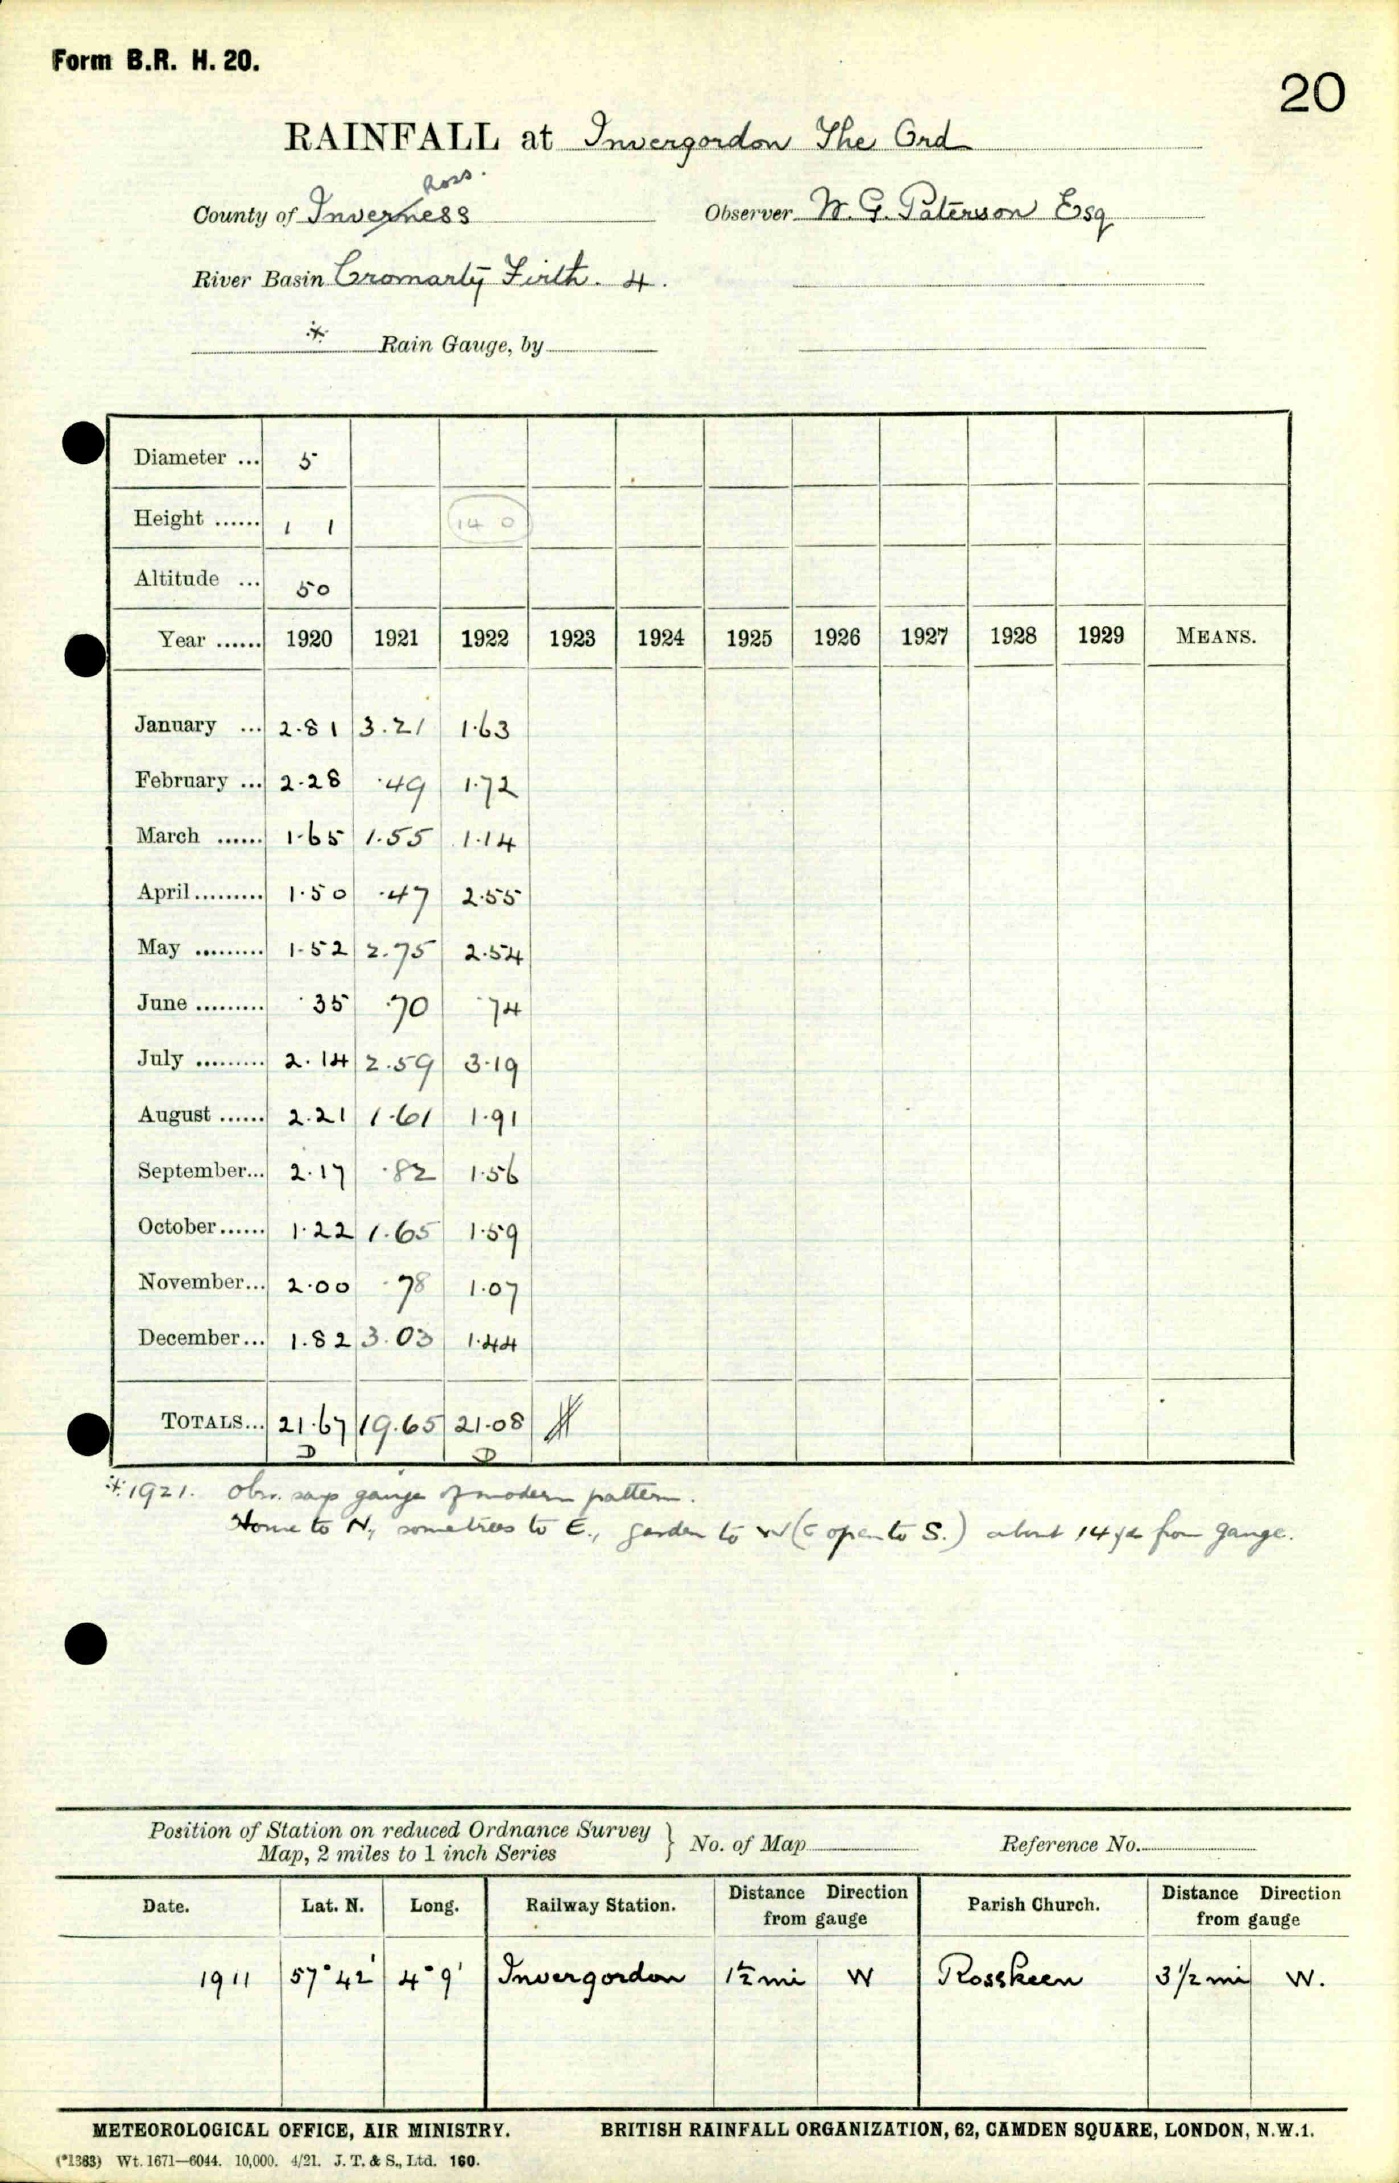 Form B.R. H. 20.
20
RAINFALL at Invergordon The Ord
Ross.
County of Inverness Observer W. G. Paterson Esq
River Basin Cromarty Firth. 4.
* Rain Gauge, by
Diameter ... 5
Height ...... 1 1 14 0
Altitude ... 50
Year ...... 1920 1921 1922 1923 1924 1925 1926 1927 1928 1929 MEANS.
January ... 2.81 3.21 1.63
February ... 2.28 .49 1.72
March ...... 1.65 1.55 1.14
April......... 1.50 .47 2.55
May ......... 1.52 2.75 2.54
June ......... .35 .70 .74
July ......... 2.14 2.59 3.19
August ...... 2.21 1.61 1.91
September... 2.17 .82 1.56
October...... 1.22 1.65 1.59
November... 2.00 .78 1.07
December... 1.82 3.03 1.44
TOTALS... 21.67 19.65 21.08
D D
* 1921. Obsr. says gauge of modern pattern.
House to N, some trees to E., garden to W (& open to S.) about 14 yd from gauge.
Position of Station on reduced Ordnance Survey
Map, 2 miles to 1 inch Series } No. of Map Reference No.
Date. Lat. N. Long. Railway Station. Distance Direction from gauge Parish Church. Distance Direction from gauge
1911 57° 42' 4° 9' Invergordon 1½ mi W Rosskeen 3 1/2 mi W.
METEOROLOGICAL OFFICE, AIR MINISTRY. BRITISH RAINFALL ORGANIZATION, 62, CAMDEN SQUARE, LONDON, N.W.1.
(*1383) Wt. 1671—6044. 10,000. 4/21. J. T. & S., Ltd. 160.